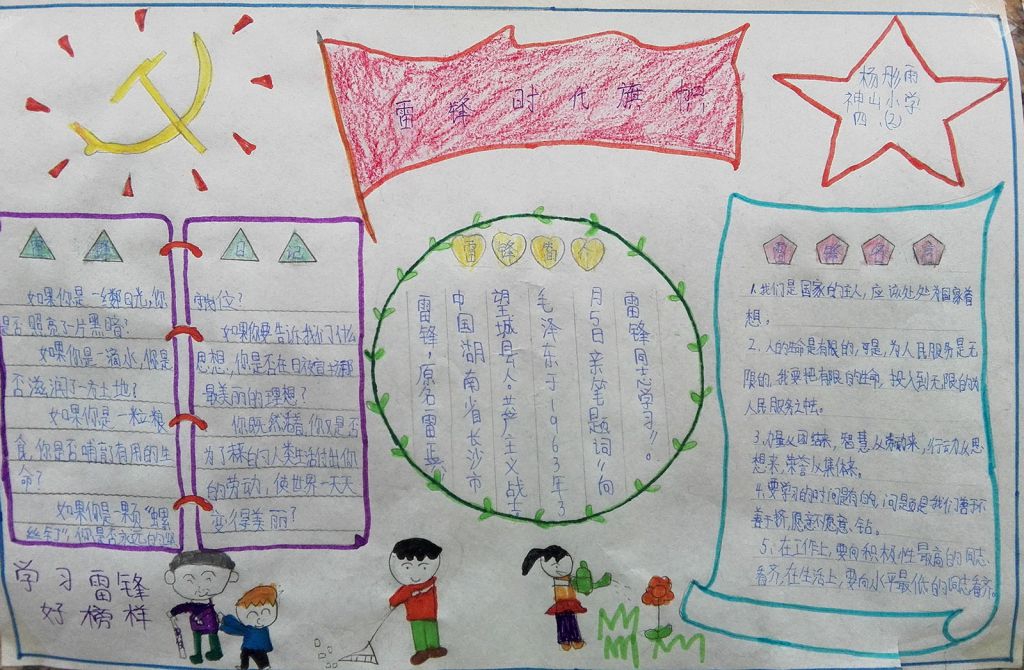 雷锋时代旗帜
杨彤雨
神山小学
四.(2)
雷锋日记
如果你是一缕阳光,你
是否照亮了一片黑暗?
如果你是一滴水,你是
否滋润了一方土地?
如果你是一粒粮
食,你是否哺育了有用的生
命?
如果你是一颗"螺
丝钉",你是否永远的坚
守岗位?
如果你要告诉我们什么
思想,你是否在日夜宣扬那
最美丽的理想?
你既然活着,你又是否
为了未来的人类生活付出你
的劳动,使世界一天天
变得美丽?
雷锋简介
雷锋,原名雷正兴
中国湖南省长沙市
望城县人。共产主义战士
毛泽东于1963年3
月5日亲笔题词"向
雷锋同志学习"。
雷锋名言
1.我们是国家的主人,应该处处为国家着
想。
2.人的生命是有限的,可是,为人民服务是无
限的,我要把有限的生命,投入到无限的为
人民服务之中去。
3.力量从团结来,智慧从劳动来,行动从思
想来,荣誉从集体来。
4.要学习的时间是有的,问题是我们善不
善于挤,愿意不愿意钻。
5.在工作上,要向积极性最高的同志
看齐,在生活上,要向水平最低的同志看齐。
学习雷锋
好榜样